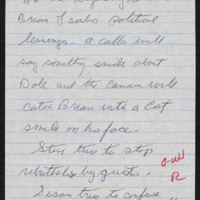 Brian Lambs political
leanings. A caller will
say something snide about
Dole and the camera will
catch Brian with a Cat
smile on his face.
Ston tries to stop
rebuttals by guests.
Susan tries to confuse